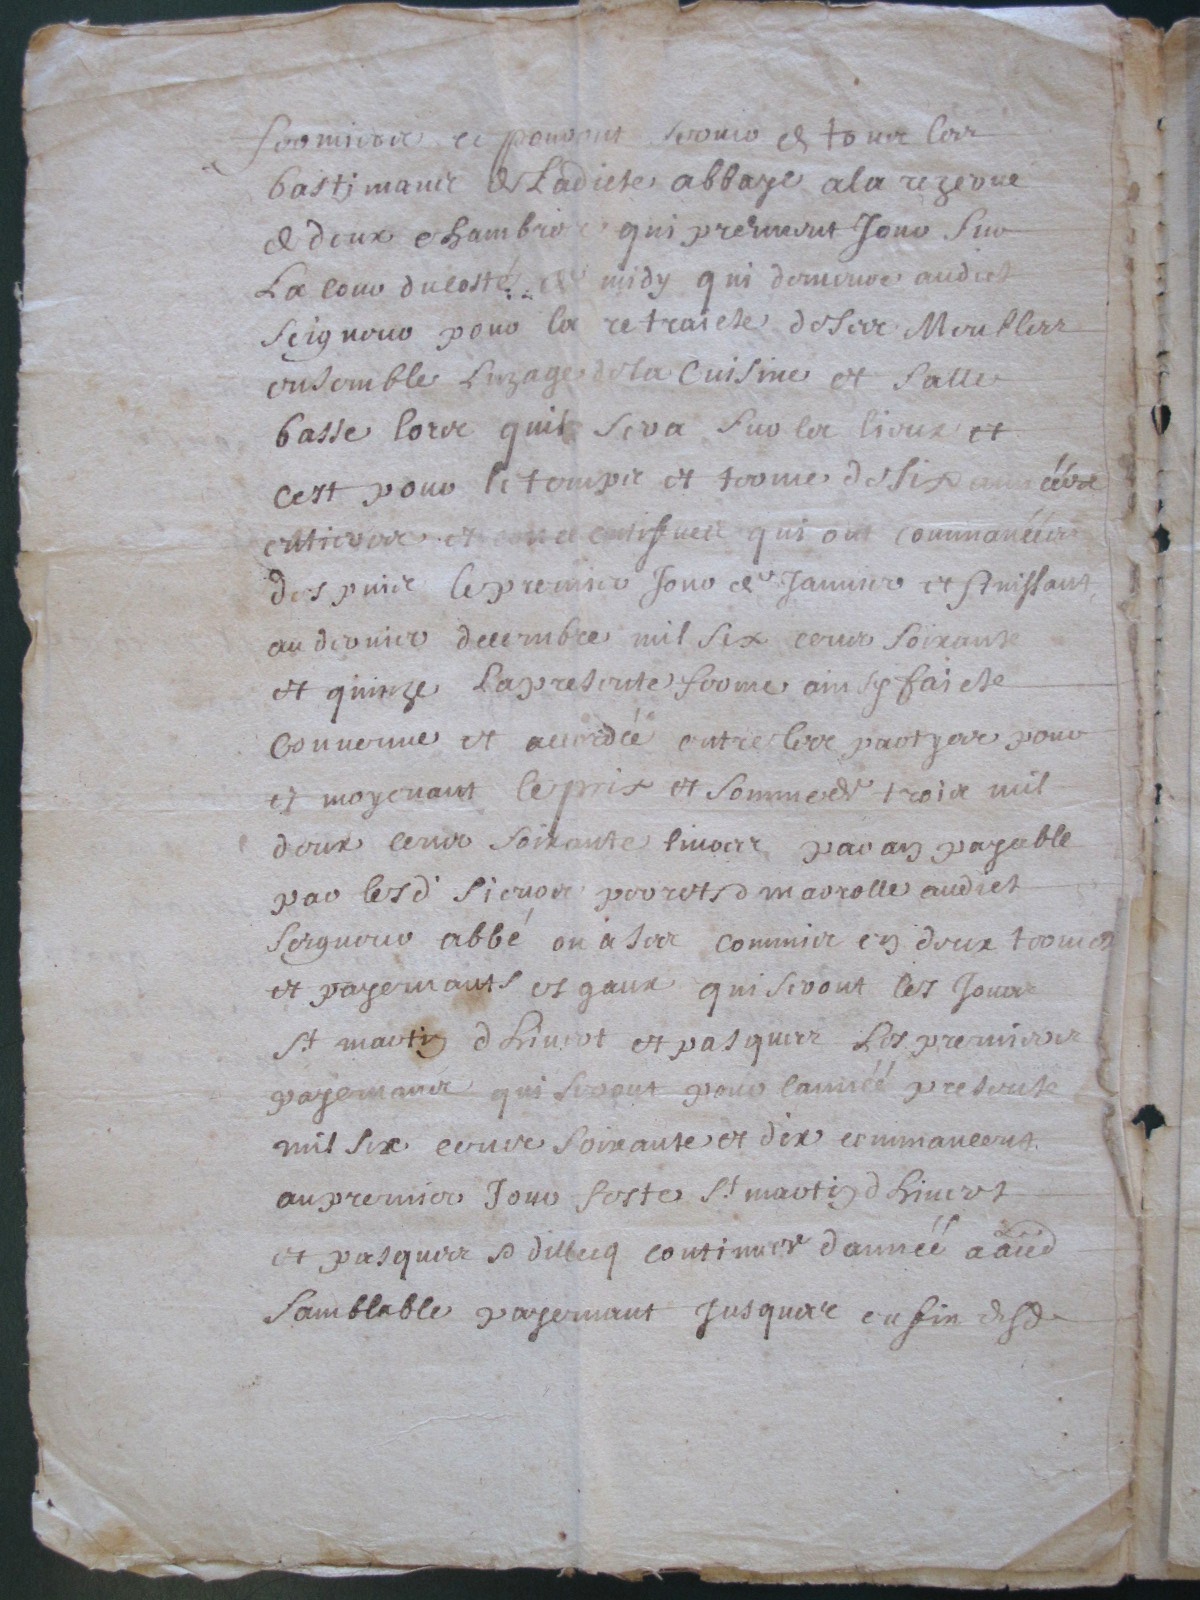 fermiers et pouront servir & tous les
bastimans de Ladicte abbaye a la rezerve
de deux chambres qui prennent Jour sur
La cour du costé de midy qui demeure audict
Seigneur pour la retraicte de ses Meubles
ensemble Luzage de la Cuisine et Salle
basse lors quil sera sur les lieux et
cest pour le temps et terme de Six années
entieres et qui ont commancées
des puis le premier Jour de Janvier et finissant
au dernier decembre mil six cens soixante
et quinze La presente ferme ainsy faicte
Convenue et accordée entre les partyes pour
et moyenant le prix et somme de trois mil
deux cens soixante livres par an payable
par lesd' sieurs porret d marolle audict
Seigneur abbé ou a ses commis en deux termes
et payemants esgaux qui seront les Jours
St martin dhivert et pasques Les premiers
payemans qui seront pour lannéé presente
mil six cens soixante et dix commancent
au premier Jour feste St martin dhivert
et pasques & dillecq continuer dannéé a
Samblable payemant Jusques en fin desd